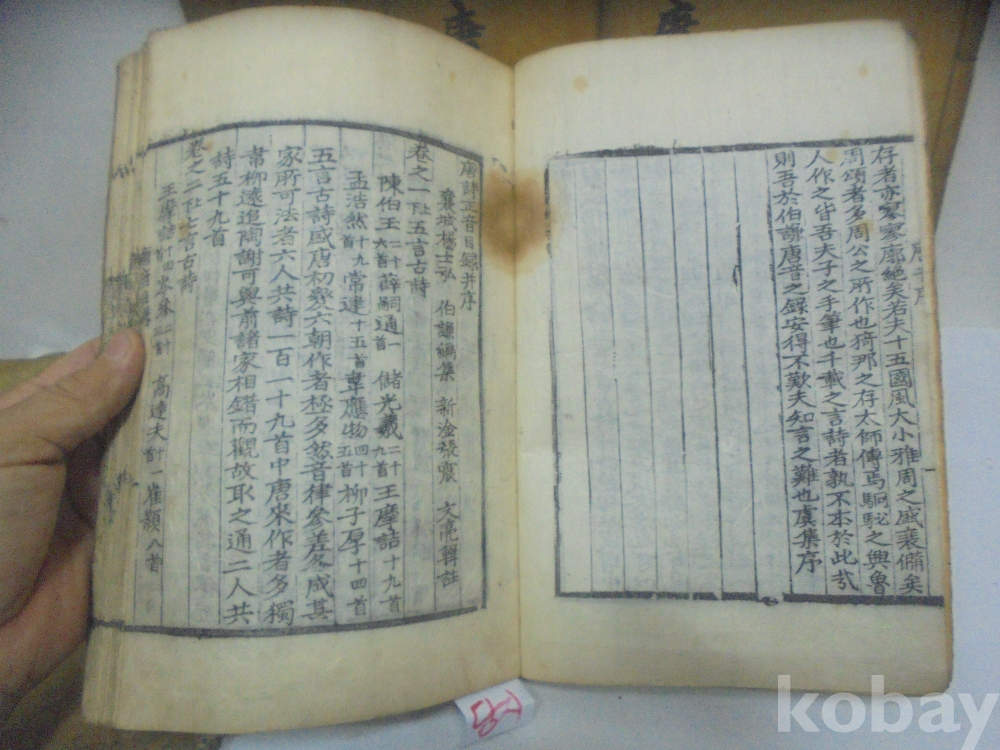 存者亦寥寥廓絕矣若夫十五國風大小雅周之盛衰備矣
周頌者多周公之所作也猗那之存太師傳焉駉駜之興魯
人作之皆吾夫子之手筆也千載之言詩者孰不本於此哉
則吾於伯謙唐音之錄安得不歎夫知言之難也虞集序
唐詩正音目錄并序
襄城楊士弘 伯謙編集 新淦張震 文亮輯註
卷之一 五言古詩
陳伯玉二十六首 薛嗣通一首 儲光羲二十九首 王摩詰十九首
孟浩然十九首 常建十五首 韋應物四十五首 柳子厚十四首
五言古詩盛唐初變六朝作者極多然音律參差各成其
家所可法者六人共詩一百一十九首中唐來作者多獨
韋柳遠追陶謝可與前諸家相錯而觀故取之通二人共
詩五十九首
卷之二 七言古詩
王摩詰 高達夫 崔顥八首
唐
唐
kobay